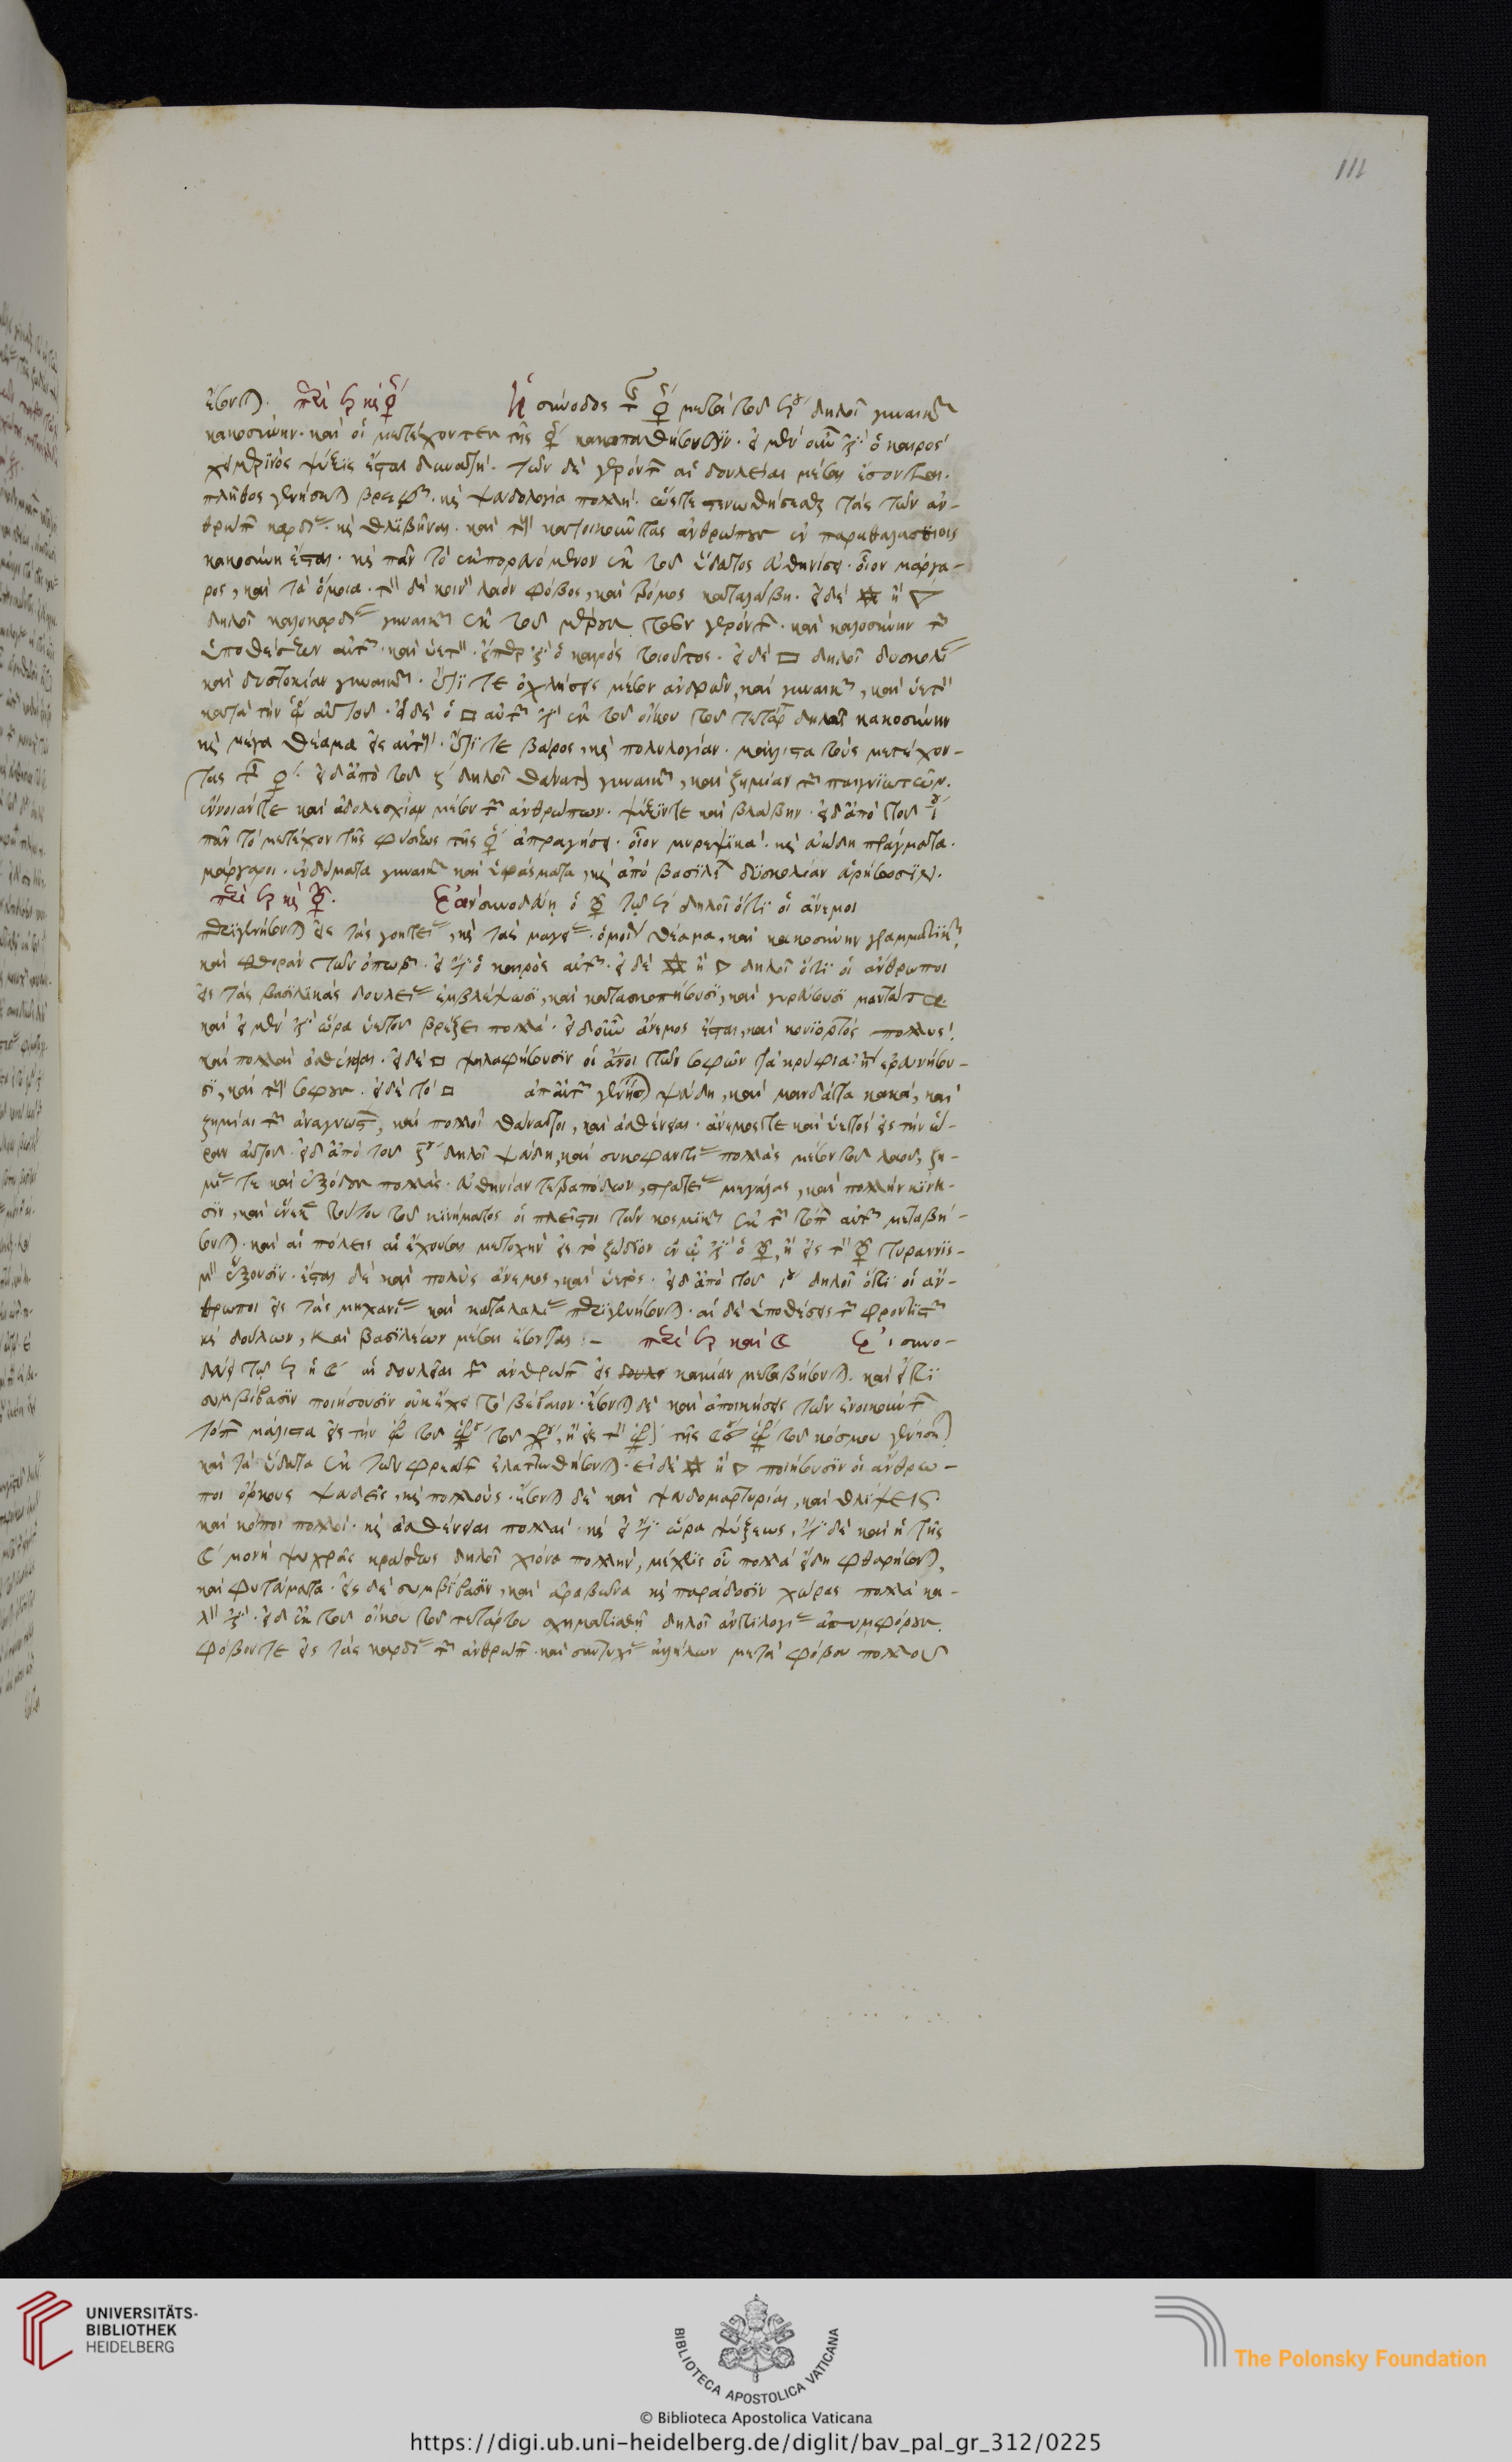 111
ἔσονται. περὶ ♄ καὶ ♀ Ἡ σύνοδος τῆς ♀ μετὰ τοῦ ♄ δηλοῖ γυναικῶν
κακοσύνην. καὶ οἱ μετέχοντες τῆς ♀ κακοπαθήσουσιν. εἰ μὲν οὖν ὁ καιρὸς
χειμερινὸς ψύξις ἔσται δυνατή. τῶν δὲ γερόντων αἱ δουλεῖαι μέσαι ἔσονται.
πλῆθος γεννήσεται βρεφῶν. καὶ ψευδολογία πολλή. ὥστε στενωθήσεσθαι τὰς τῶν ἀν-
θρώπων καρδίας. καὶ θλιβῆναι. καὶ τοὺς κατοικοῦντας ἀνθρώπους ἐν παραθαλασσίοις
κακοσύνη ἔσται. καὶ πᾶν τὸ ἐκπορευόμενον ἐκ τοῦ ὕδατος εὐθηνήσει. οἷον μάργα-
ρος, καὶ τὰ ὅμοια. τὸν δὲ κοινὸν λαὸν φόβος, καὶ τρόμος καταλάβη. εἰ δὲ ⚹ ἢ △
δηλοῖ καλοκαρδίαν γυναικῶν ἐκ τοῦ μέρους τῶν γερόντων. καὶ καλοσύνην τῶν
ὑποθέσεων αὐτῶν. καὶ ὑετὸν. εἴπερ ὁ καιρὸς τοιοῦτος. εἰ δὲ □ δηλοῖ δυσκολίαν
καὶ δυστοκίαν γυναικῶν. ἔτι τε ὀχλήσεις μέσον ἀνδρῶν, καὶ γυναικῶν, καὶ ὑετὸν
κατὰ τὴν αὐτοῦ. εἰ δὲ ὁ □ αὐτῶν ἐκ τοῦ οἴκου τοῦ τετάρτου δηλοῖ κακοσύνην
καὶ μέγα θέαμα εἰς αὐτήν. ἔτι τε βάρος, καὶ πολυλογίαν. μάλιστα τοὺς μετέχον-
τας τῆς ♀. εἰ δ' ἀπὸ τοῦ ζ δηλοῖ θάνατον γυναικῶν, καὶ ζημίαν τῶν παιγνιωτῶν.
ἔννοιάν τε καὶ ἀδολεσχίαν μέσον τῶν ἀνθρώπων. ψύξιν τε καὶ βλάβην. εἰ δ' ἀπὸ τοῦ ι
πᾶν τὸ μετέχον τῆς φύσεως τῆς ♀ ἀπραγήσει. οἷον μυρεψικὰ. καὶ εὐώδη πράγματα.
μάργαροι. ἐνδύματα γυναικῶν καὶ ὑφάσματα, καὶ ἀπὸ βασιλέων δυσκολίαν εὑρήσουσιν.
περὶ ♄ καὶ ☿. Ἐὰν συνοδεύῃ ὁ ☿ τῷ ♄ δηλοῖ ὅτι οἱ ἄνεμοι
εἰς τὰς γοητείας, καὶ τὰς μαγείας. ὁμοίως θέαμα, καὶ κακοσύνην γραμματικῶν,
καὶ φθορὰν τῶν ὀπωρῶν. εἰ ὁ καιρὸς αὐτῶν. εἰ δὲ ⚹ ἢ △ δηλοῖ ὅτι οἱ ἄνθρωποι
εἰς τὰς βασιλικὰς δουλείας ἐμβλέψωσι, καὶ κατασκοπήσουσι, καὶ γυρεύσουσι μαντάτα
καὶ εἰ μὲν ὥρα ὑετοῦ βρέξει πολλά. εἰ δ' οὖν ἄνεμος ἔσται, καὶ κονιορτὸς πολλὺς!
καὶ πολλαὶ ἀσθένειαι. εἰ δὲ □ ψηλαφήσουσιν οἱ ἄνθρωποι τῶν σοφῶν τὰ κρύφια ἢ ἐρευνήσου-
σι, καὶ τοὺς σοφοὺς. εἰ δὲ τὸ □ ἀπ' αὐτῶν γεννήσεται ψεύδη, καὶ μανδάτα κακά, καὶ
ζημίαι τῶν ἀναγνωστῶν, καὶ πολλοὶ θάνατοι, καὶ ἀσθένειαι. ἄνεμός τε καὶ ὑετὸς εἰς τὴν ὥ-
ραν αὐτοῦ. εἰ δ' ἀπὸ τοῦ ζ δηλοῖ ψεύδη, καὶ συκοφαντίας πολλὰς μέσον τοῦ λαοῦ, ζη-
μίας τε καὶ ἐξόδους πολλάς. εὐθηνίαν τετραπόδων, πρατείας μεγάλας, καὶ πολλὴν κίνη-
σιν, καὶ ἕνεκεν τούτου τοῦ κινήματος οἱ πλεῖστοι τῶν κοσμικῶν ἐκ τῶν τόπων αὐτῶν μεταβή-
σονται. καὶ αἱ πόλεις αἱ ἔχουσαι μετοχὴν εἰς τὸ ζώδιον ἐν ᾧ ὁ ☿, ἢ εἰς τὸν ☿ τυραννισ-
μὸν ἕξουσιν. ἔσται δὲ καὶ πολὺς ἄνεμος, καὶ ὑετός. εἰ δ' ἀπὸ τοῦ ι δηλοῖ ὅτι οἱ ἄν-
θρωποι εἰς τὰς μηχανίας καὶ καταλαλίας. αἱ δὲ ὑποθέσεις τῶν φροντιστῶν
καὶ δούλων, καὶ βασιλέων μέσαι ἔσονται :– περὶ ♄ καὶ ☾ Εἰ συνο-
δεύει τῷ ♄ ἡ ☾ αἱ δουλεῖαι τῶν ἀνθρώπων εἰς κακίαν μεταβήσονται. καὶ ἔτι
συμβίβασιν ποιήσουσιν οὐκ ἔχει τὸ βέβαιον. ἔσονται δὲ καὶ ἀποικήσεις τῶν ἐνοικούντων
τόπων μάλιστα εἰς τὴν τοῦ τοῦ, ἢ εἰς τὸν τῆς ☾ τοῦ κόσμου
καὶ τὰ ὕδατα ἐκ τῶν φρεάτων ἐλαττωθήσονται. εἰ δὲ ⚹ ἢ △ ποιήσουσιν οἱ ἄνθρω-
ποι ὅρκους ψευδεῖς, καὶ πολλούς. ἔσονται δὲ καὶ ψευδομαρτυρίαι, καὶ θλίψεις
καὶ κόποι πολλοί. καὶ ἀσθένειαι πολλαί. καὶ εἰ ὥρα ψύξεως, δὲ καὶ ἡ τῆς
☾ μονὴ ψυχρᾶς κράσεως δηλοῖ χιόνα πολλὴν, μέχρις οὗ πολλὰ εἴδη φθαρήσονται,
καὶ φυτεύματα. εἰς δὲ συμβίβασιν, καὶ ἀραβῶνα καὶ παράδοσιν χώρας πολλὰ κα-
λόν. εἰ δ' ἐκ τοῦ οἴκου τοῦ τετάρτου σχηματισθῆ δηλοῖ ἀντιλογίας ἀσυμφόρους
φόβον τε εἰς τὰς καρδίας τῶν ἀνθρώπων. καὶ συντυχίας ἀλλήλων μετὰ φόβου πολλοῦ
UNIVERSITÄTS-
BIBLIOTHEK
HEIDELBERG
BIBLIOTECA APOSTOLICA VATICANA
The Polonsky Foundation
© Biblioteca Apostolica Vaticana
https://digi.ub.uni-heidelberg.de/diglit/bav_pal_gr_312/0225